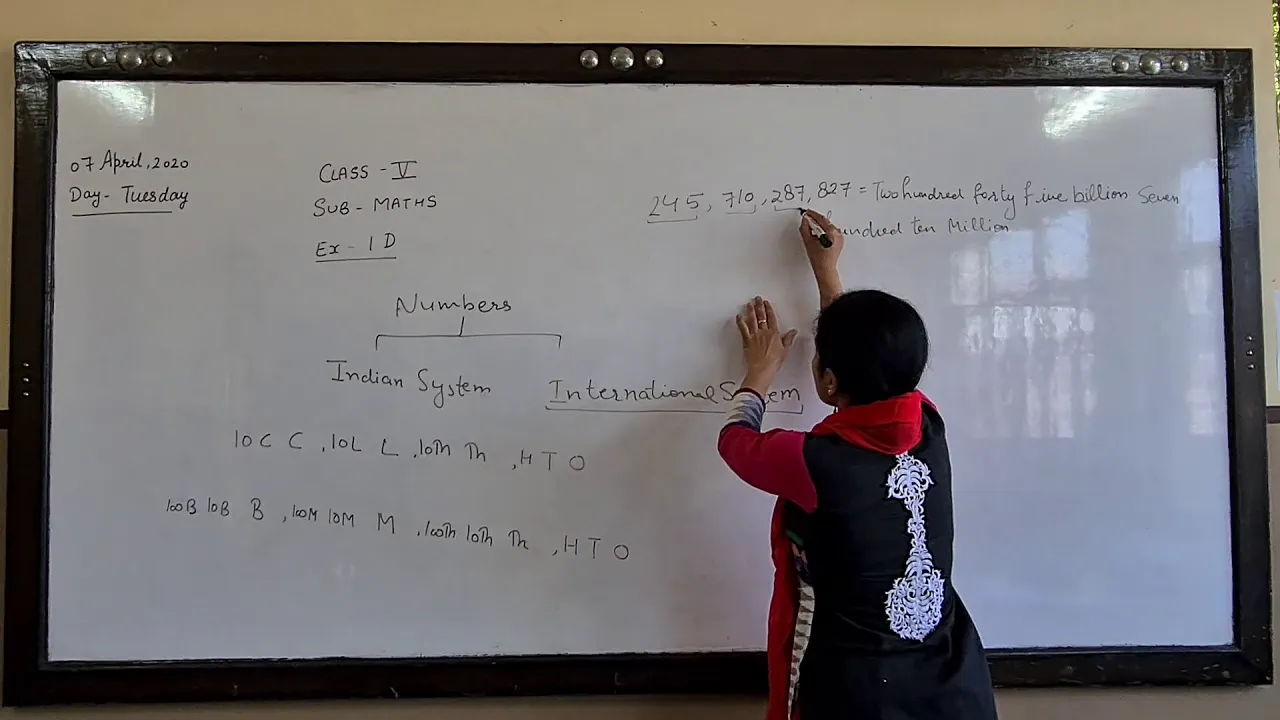 07 April, 2020
Day- Tuesday
CLASS - V
SUB - MATHS
Ex - 1 D
Numbers
Indian System
International System
10C C , 10L L , 10Th Th , H T O
100B 10B B , 100M 10M M , 100Th 10Th Th , H T O
245, 710, 287, 827 = Two hundred forty five billion Seven
hundred ten Million